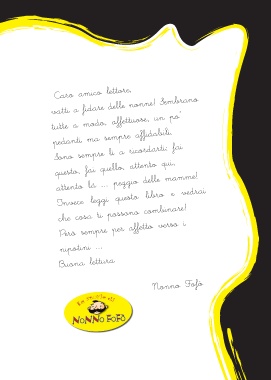 Caro amico lettore,
vatti a fidare delle nonne! Sembrano
tutte a modo, affettuose, un po'
pedanti ma sempre affidabili.
Sono sempre lì a ricordarti: fai
questo, fai quello, attento qui,
attento là ... peggio delle mamme!
Invece leggi questo libro e vedrai
che cosa ti possono combinare!
Però sempre per affetto verso i
nipotini ...
Buona lettura
Nonno Fofò
NONNO FOFÒ